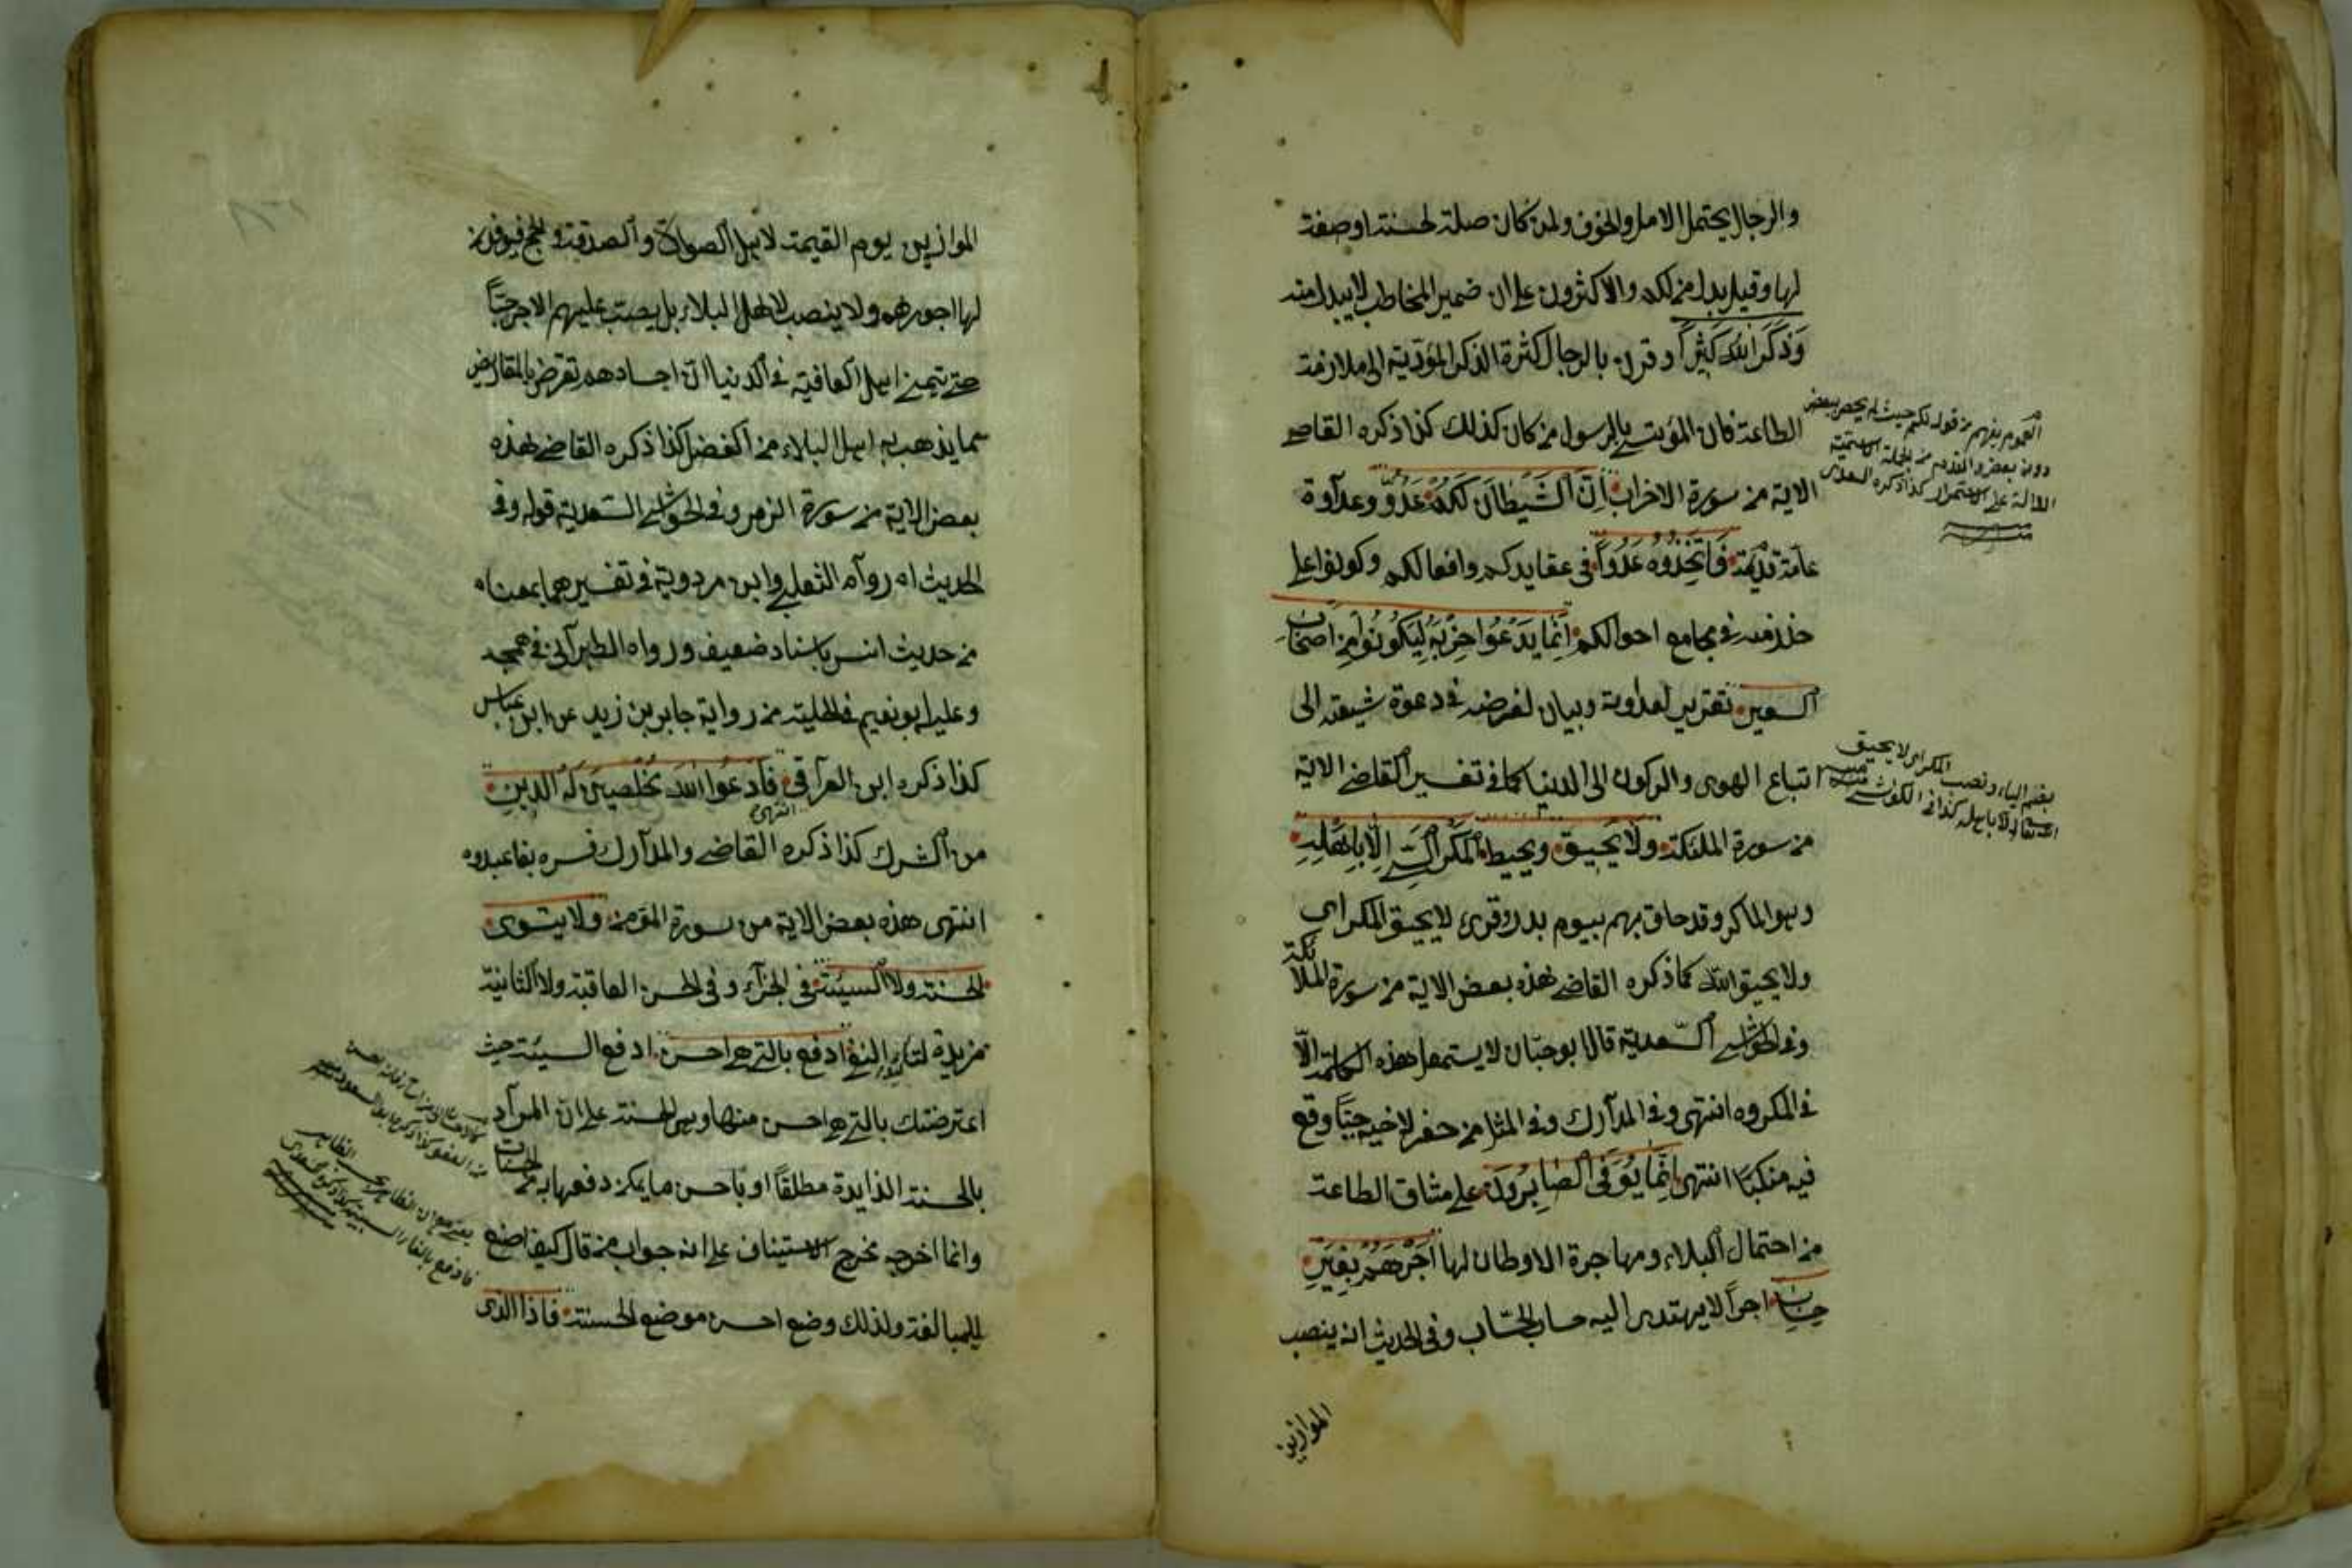 والرجال يحتمل الامل والخوف ولمن كان صلة لحسنة او صفة
لها وقيل بدل من لكم والاكثرون على ان ضمير المخاطب لا يبدل منه
وَذَكَرَ اللّٰهَ كَثِيرًا وقرن بالرجال كثرة الذكر المؤدية الى ملازمة
الطاعة فان المؤتسي بالرسول من كان كذلك كذا ذكره القاضي
الاية من سورة الاحزاب اِنَّ الشَّيْطَانَ لَكُمْ عَدُوٌّ عداوة
عامة قديمة فَاتَّخِذُوهُ عَدُوًّا في عقايدكم وافعالكم وكونوا على
حذر منه في مجامع احوالكم اِنَّمَا يَدْعُوا حِزْبَهُ لِيَكُونُوا مِنْ اَصْحَابِ
السعير تقرير لعداوته وبيان لغرضه في دعوة شيعته الى
اتباع الهوى والركون الى الدنيا كما في تفسير القاضي الاية
من سورة الملئكة وَلَا يَحِيقُ ويحيط الْمَكْرُ السَّيِّئُ اِلَّا بِاَهْلِهِ
وهو الماكر وقد حاق بهم يوم بدر وقرئ لا يحيق المكر اى
ولا يحيق اللّٰه كما ذكره القاضي هذه بعض الاية من سورة الملائكة
وفي الحواشي السعدية قال ابو حيان لا يستعمل هذه الكلمة الّا
في المكروه انتهى وفي المدارك وفي المثل من حفر لاخيه جبًّا وقع
فيه منكبًا انتهى اِنَّمَا يُوَفَّى الصَّابِرُونَ على مشاق الطاعة
من احتمال البلاء ومهاجرة الاوطان لها اَجْرَهُمْ بِغَيْرِ
حِسَابٍ اجرًا لا يهتدى اليه حساب الحسّاب وفي الحديث انه ينصب
الموازين
العموم يفهم من قوله لكم حيث لم يخص ببعض
دون بعض والقدم من الجملة الاسمية
الدالة على الاستمرار كذا ذكره السعدى
بضم الياء ونصب المكر اى لا يحيق
الله تعالى الا باهله كذا في الكواشي
الموازين يوم القيمة لاهل الصلوة والصدقة والحج فيوفون
لها اجورهم ولا ينصب لاهل البلاء بل يصبّ عليهم الاجر صبًّا
حتى يتمنى اهل العافية في الدنيا ان اجسادهم تقرض بالمقاريض
مما يذهب به اهل البلاء من الفضل كذا ذكره القاضي هذه
بعض الاية من سورة الزمر وفي الحواشي السعدية قوله وفي
الحديث اه رواه الثعلبي وابن مردوية في تفسيرهما بمعناه
من حديث انس باسناد ضعيف ورواه الطبراني في معجمه
وابو نعيم في الحلية من رواية جابر بن زيد عن ابن عباس
كذا ذكره ابن العراقي انتهى فَادْعُوا اللّٰهَ مُخْلِصِينَ لَهُ الدِّينَ
من الشرك كذا ذكره القاضي والمدارك فسره بفاعبدوه
انتهى هذه بعض الاية من سورة المؤمن ولا يستوى
الحسنة ولا السيئة في الجزاء وفي الحسن العاقبة ولا الثانية
مزيدة لتاكيد النفى ادفع بالتي هي احسن ادفع السيئة حيث
اعترضتك بالتي هي احسن منها وهي الحسنة على ان المراد
بالحسنة الزايدة مطلقًا او باحسن ما يمكن دفعها به من الحسنات
وانما اخرجه مخرج الاستيناف على انه جواب من قال كيف اصنع
للمبالغة ولذلك وضع احسن موضع الحسنة فاذا الذى
من العفو كذا ذكره ابو السعود
فادفع بالفاء